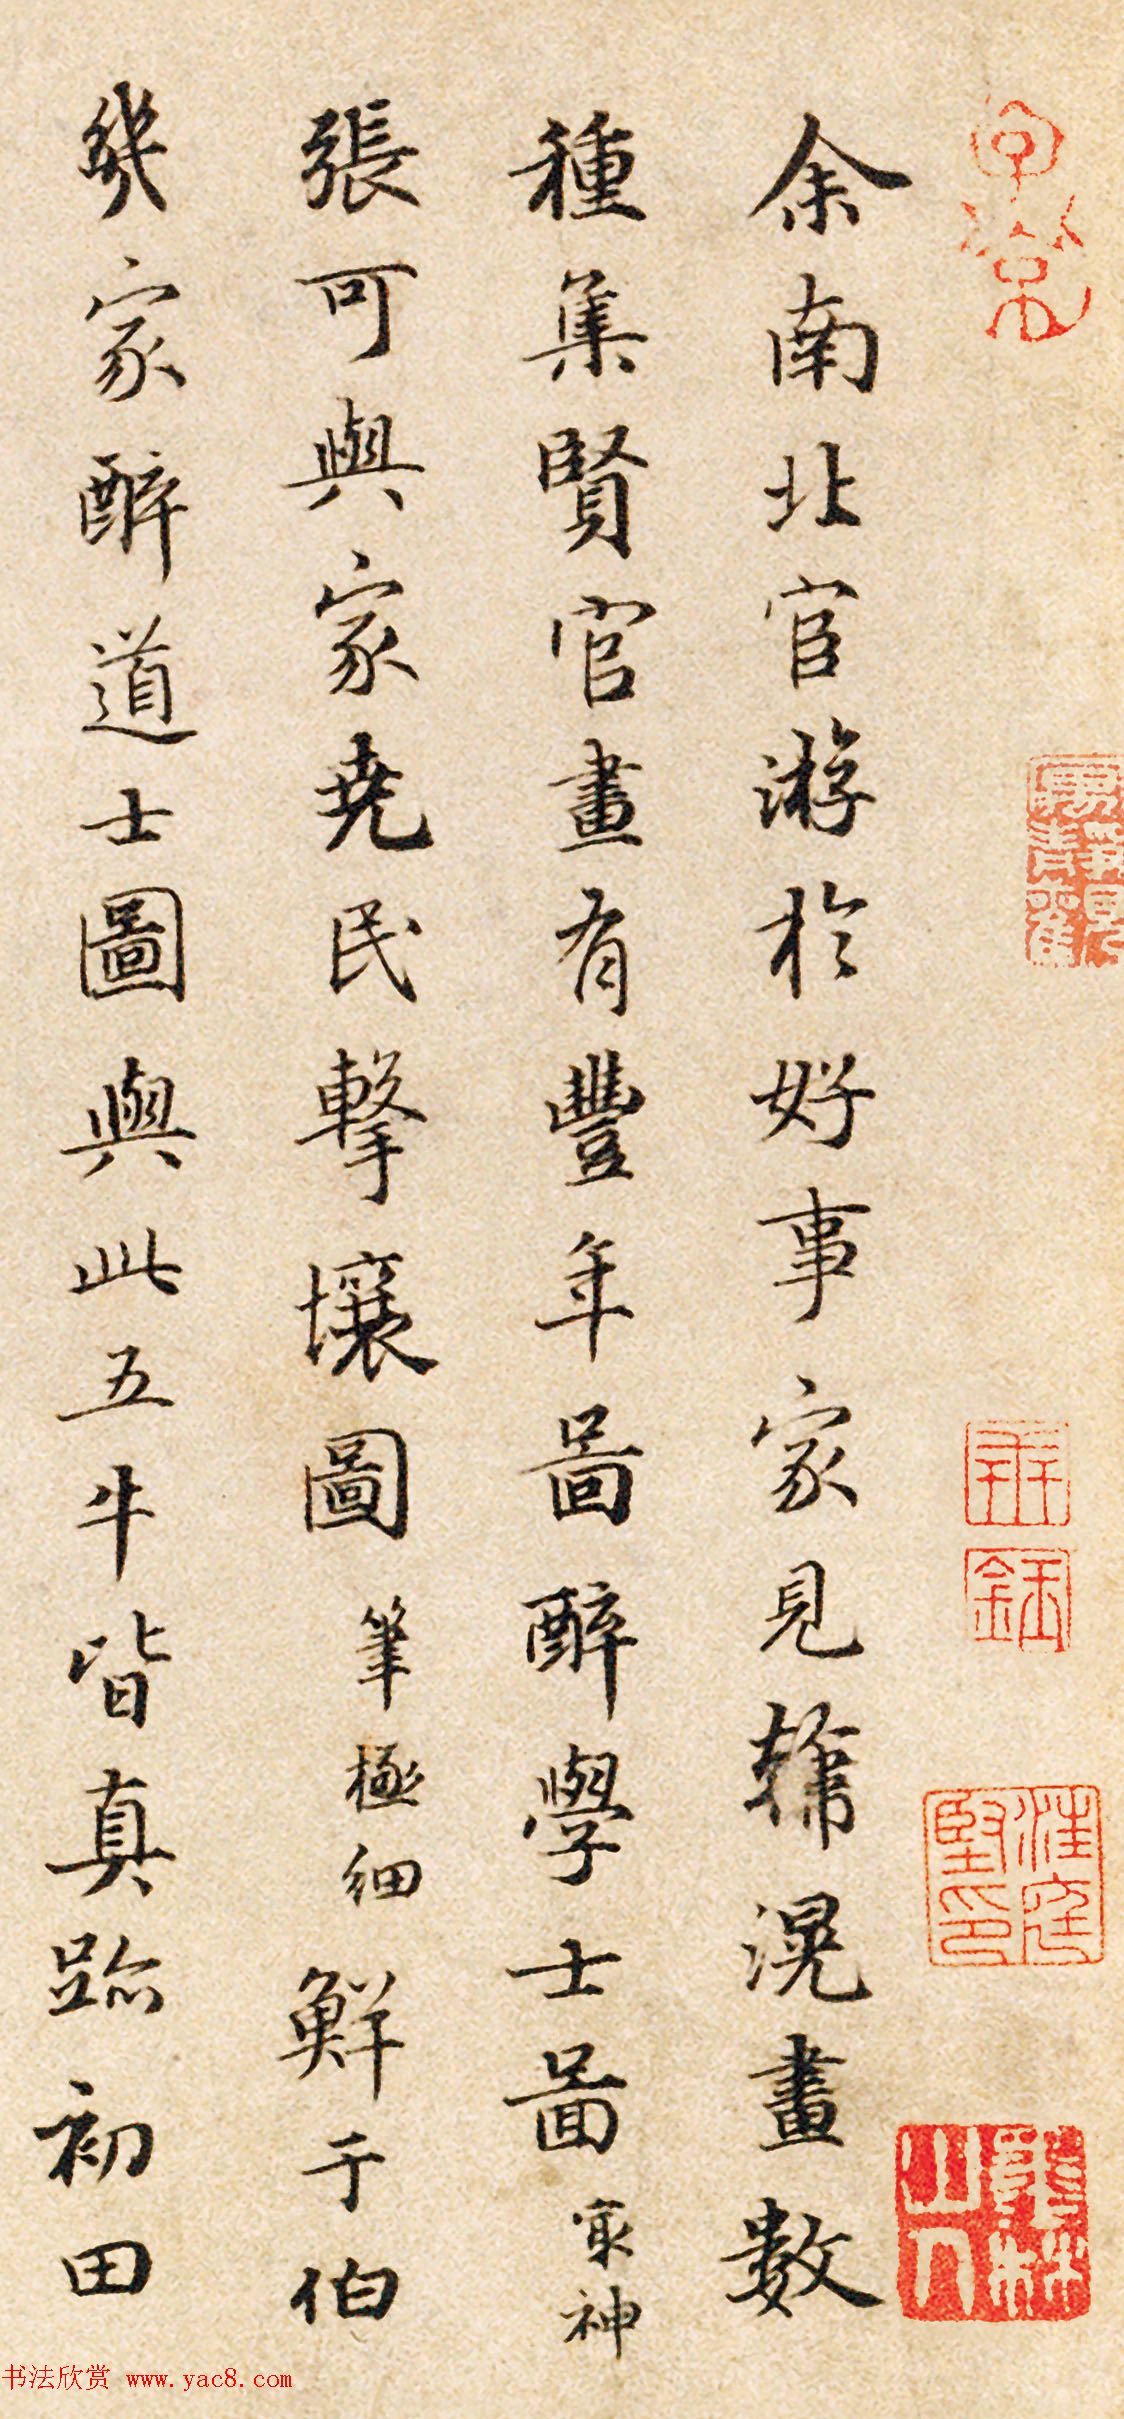 余南北宦游於好事家見韓滉畫數
種集賢官畫有豐年啚醉學士啚㝡神
張可與家堯民擊壤圖筆極細鮮于伯
幾家醉道士圖與此五牛皆真跡初田
书法欣赏 www.yac8.com